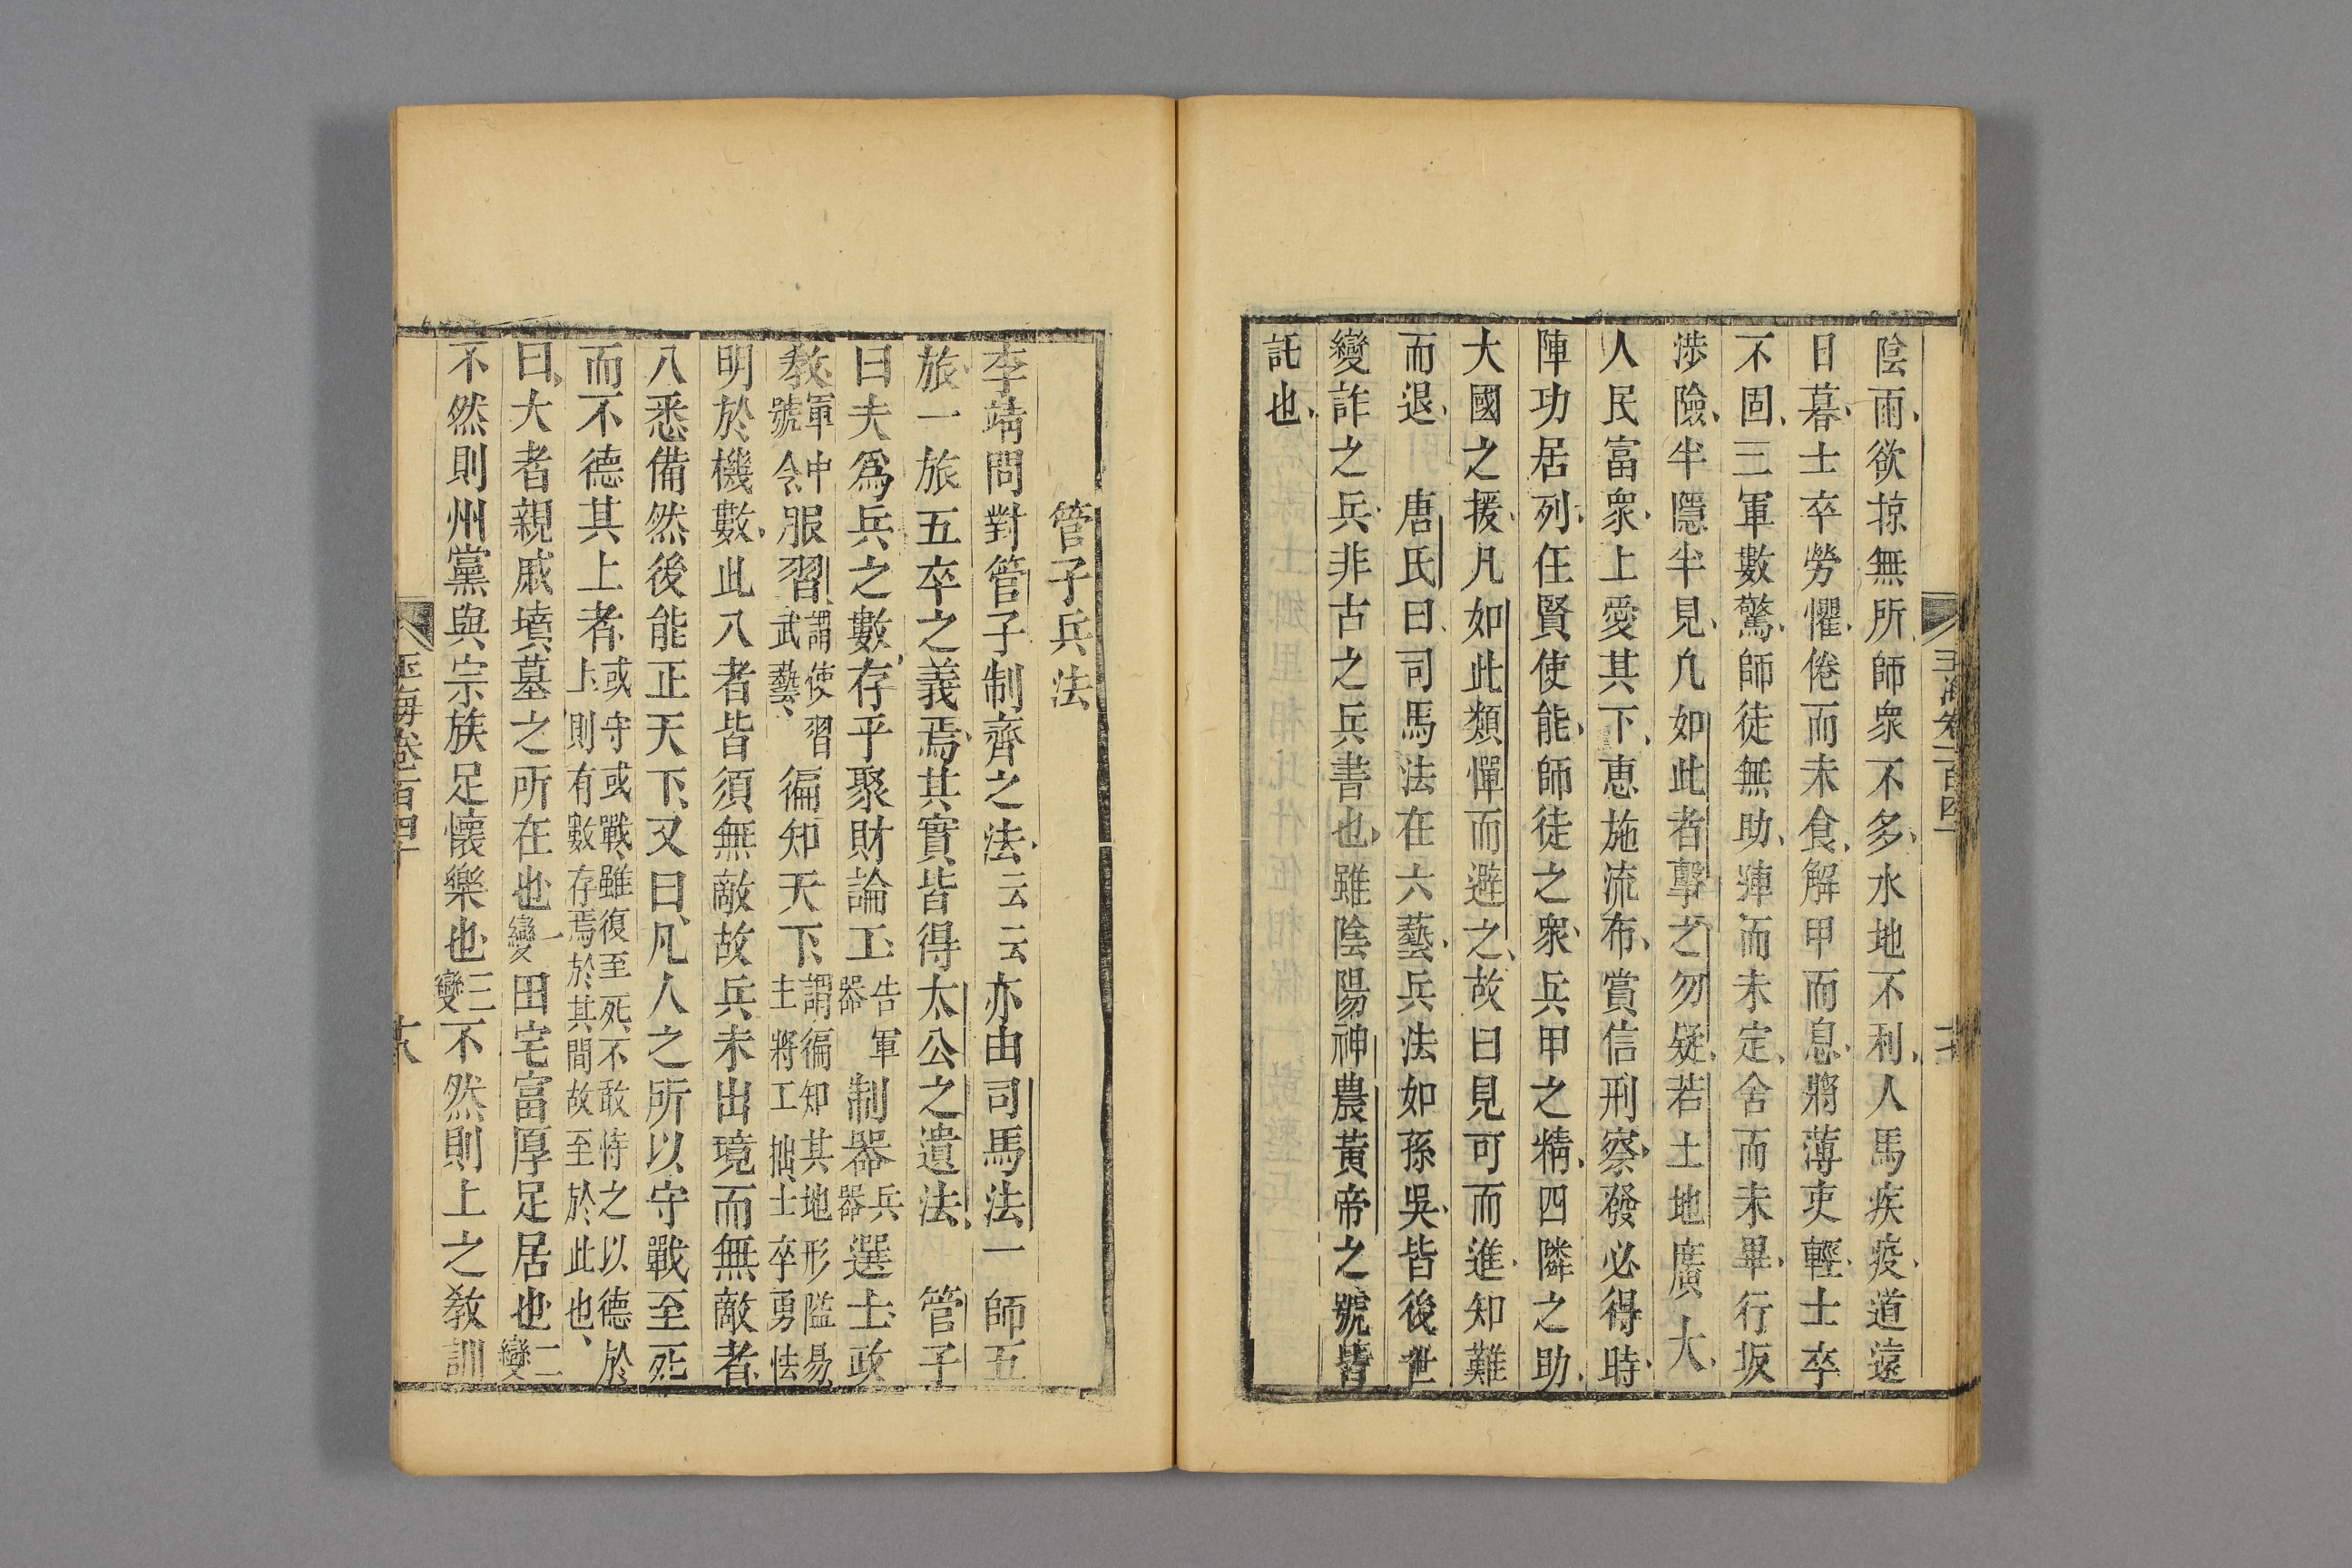 陰雨欲掠無所師衆不多水地不利人馬疾疫道遠
日暮士卒勞懼倦而未食解甲而息將薄吏輕士卒
不固三軍數驚師徒無助陣而未定舍而未畢行坂
涉險半隱半見凡如此者擊之勿疑若土地廣大
人民富衆上愛其下惠施流布賞信刑察發必得時
陣功居列任賢使能師徒之衆兵甲之精四隣之助
大國之援凡如此類憚而避之故曰見可而進知難
而退　唐氏曰司馬法在六藝兵法如孫吳皆後世
變詐之兵非古之兵書也雖陰陽神農黃帝之號皆
託也
管子兵法
李靖問對管子制齊之法云云亦由司馬法一師五
旅一旅五卒之義焉其實皆得太公之遺法　管子
曰夫爲兵之數存乎聚財論工告軍器制器兵器選士政
教軍中號令服習謂使習武藝徧知天下謂徧知其地形隘易主將工拙士卒勇怯
明於機數此八者皆須無敵故兵未出境而無敵者
八悉備然後能正天下又曰凡人之所以守戰至死
而不德其上者或守或戰雖復至死不敢恃之以德於上則有數存焉於其間故至於此也
曰大者親戚墳墓之所在也一變田宅富厚足居也二變
不然則州黨與宗族足懷樂也三變不然則上之教訓
玉海卷一百四十
玉海卷一百四十